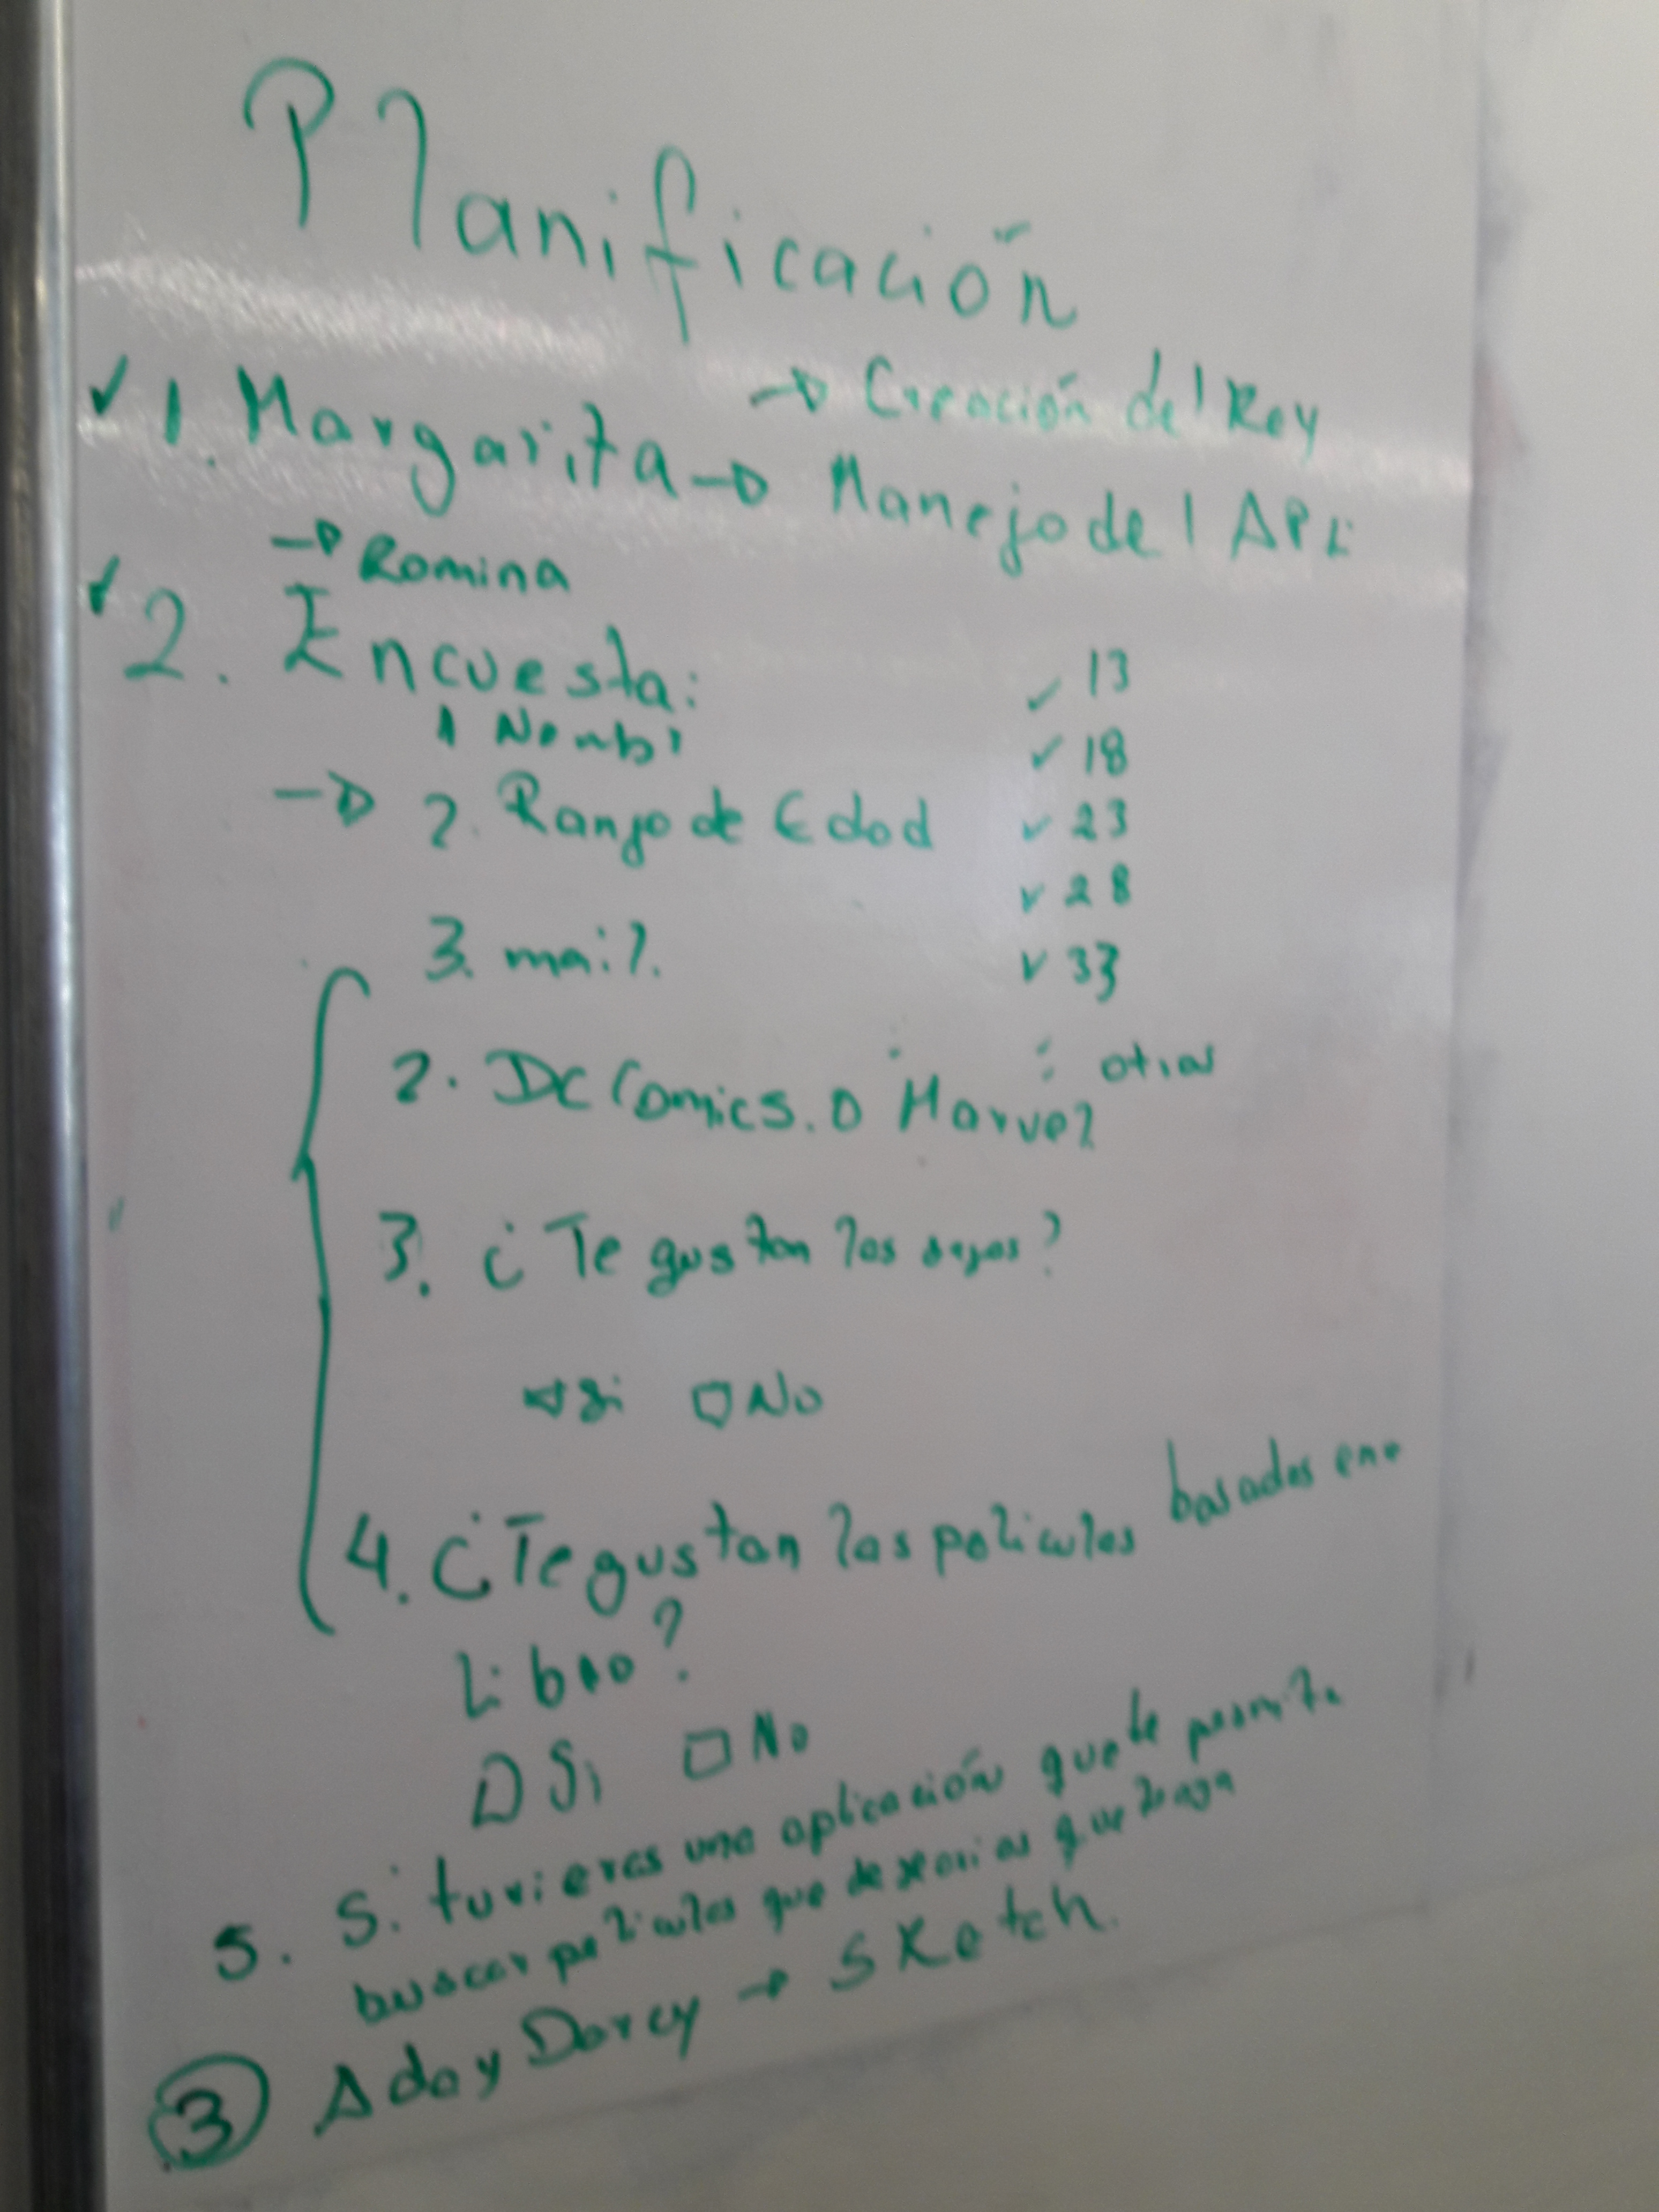 Planificación
✓ 1. Margarita → Creación del Key
→ Manejo del API
→ Romina
✓ 2. Encuesta:
1 Nombr
→ 2. Rango de Edad
✓ 13
✓ 18
✓ 23
✓ 28
✓ 33
3. mail.
2. DC Comics. o Marvel otras
3. ¿Te gustan las sagas?
Si □ No
4. ¿Te gustan las peliculas basadas en
Libro?
□ Si □ No
5. Si tuvieras una aplicación que te permita
buscar peliculas que desearias que tenga
③ Ada y Darcy → Sketch.